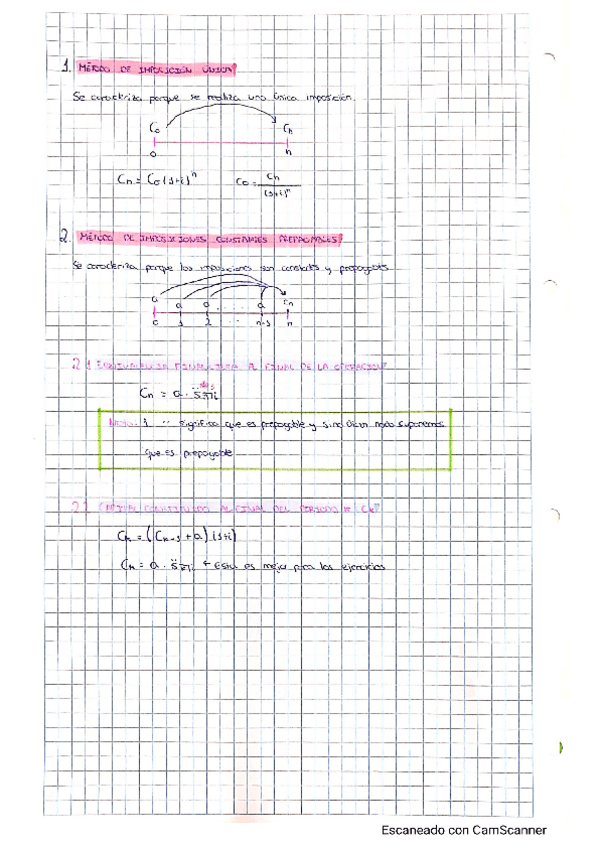 1. MÉTODO DE IMPOSICIÓN ÚNICA
Se caracteriza porque se realiza una única imposición.
C₀ Cn
0 n
Cn = C₀(1+i)ⁿ C₀ = Cn/(1+i)ⁿ
2. MÉTODO DE IMPOSICIONES CONSTANTES PREPAGABLES
Se caracteriza porque las imposiciones son constantes y prepagables
a a a ... a Cn
0 1 2 ... n-1 n
2.1 EQUIVALENCIA FINANCIERA AL FINAL DE LA OPERACIÓN
Cn = a · s̈n̅|i
Nota: 1 ·· significa que es prepagable y si no dicen nada suponemos
que es prepagable
2.2 CAPITAL CONSTITUIDO AL FINAL DEL PERIODO K "Ck"
Ck = (Ck-1 + a) (1+i)
Ck = a · s̈k̅|i ← Esta es mejor para los ejercicios
Escaneado con CamScanner